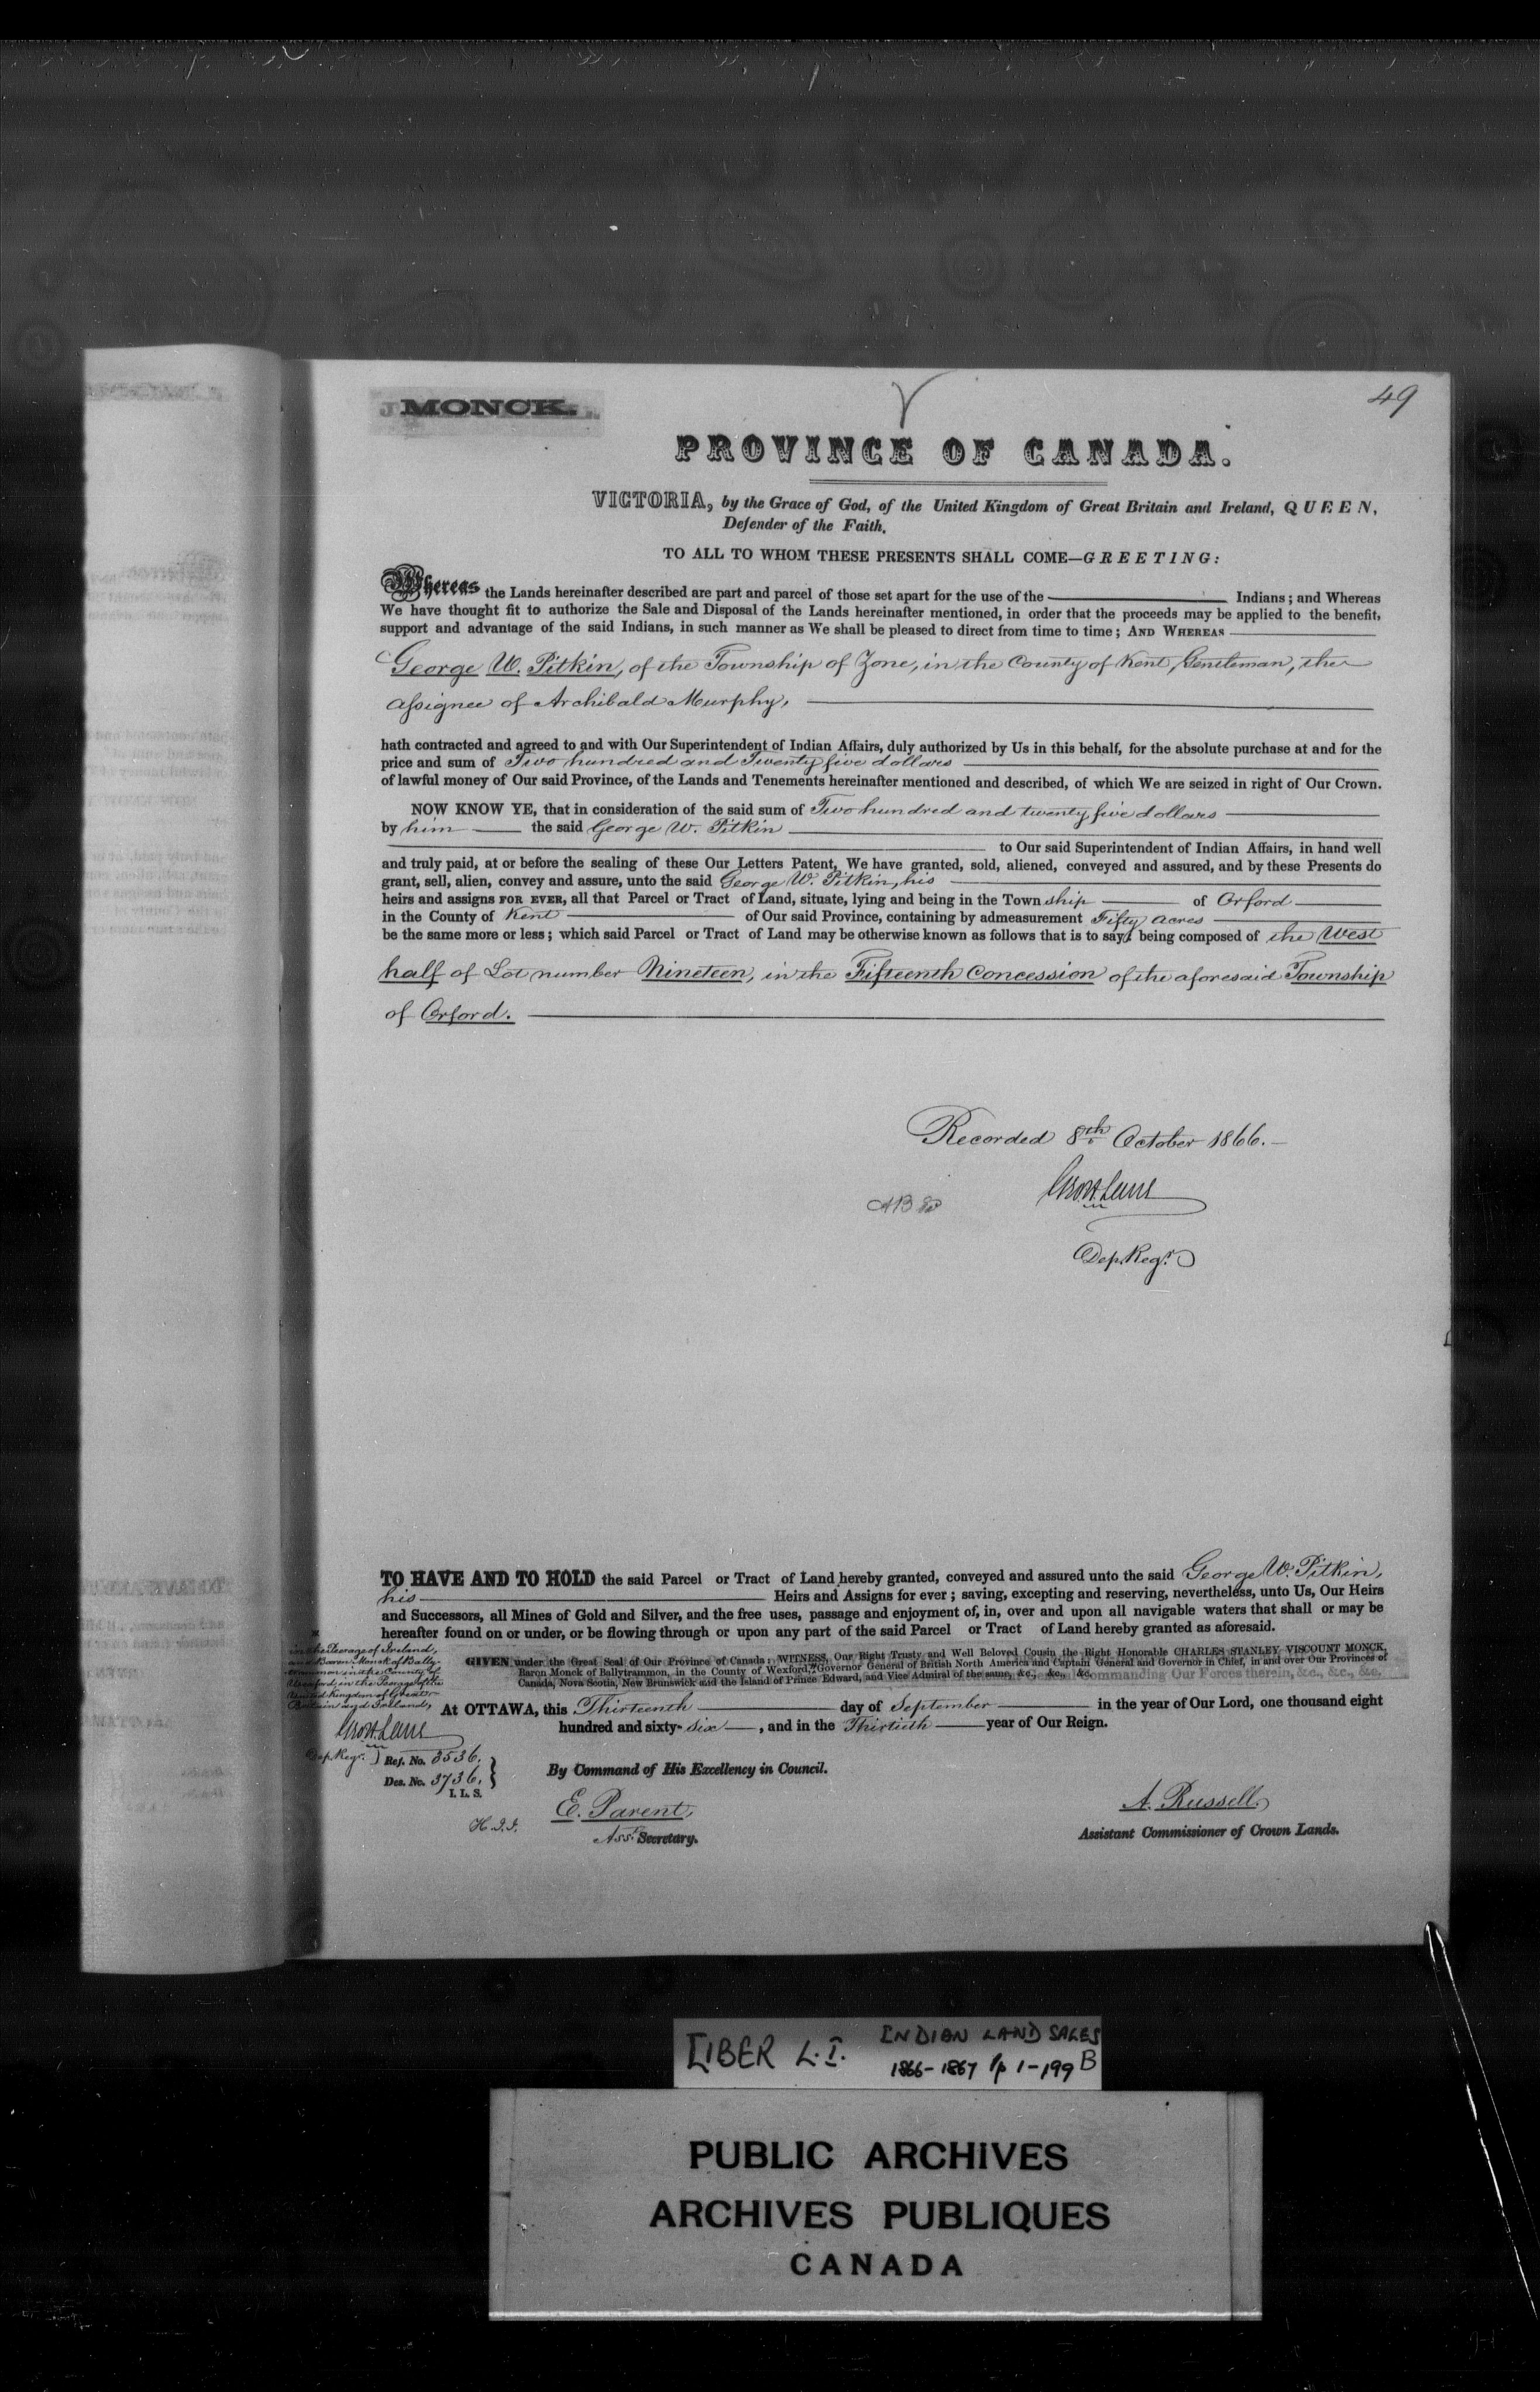 MONCK.
49
PROVINCE OF CANADA.
VICTORIA, by the Grace of God, of the United Kingdom of Great Britain and Ireland, QUEEN,
Defender of the Faith.
TO ALL TO WHOM THESE PRESENTS SHALL COME—GREETING:
Whereas the Lands hereinafter described are part and parcel of those set apart for the use of the Indians; and Whereas
We have thought fit to authorize the Sale and Disposal of the Lands hereinafter mentioned, in order that the proceeds may be applied to the benefit,
support and advantage of the said Indians, in such manner as We shall be pleased to direct from time to time; AND WHEREAS
George W. Pitkin, of the Township of Zone, in the County of Kent, Gentleman, the
assignee of Archibald Murphy,
hath contracted and agreed to and with Our Superintendent of Indian Affairs, duly authorized by Us in this behalf, for the absolute purchase at and for the
price and sum of Two hundred and Twenty five dollars
of lawful money of Our said Province, of the Lands and Tenements hereinafter mentioned and described, of which We are seized in right of Our Crown.
NOW KNOW YE, that in consideration of the said sum of Two hundred and twenty five dollars
by him the said George W. Pitkin
to Our said Superintendent of Indian Affairs, in hand well
and truly paid, at or before the sealing of these Our Letters Patent, We have granted, sold, aliened, conveyed and assured, and by these Presents do
grant, sell, alien, convey and assure, unto the said George W. Pitkin, his
heirs and assigns FOR EVER, all that Parcel or Tract of Land, situate, lying and being in the Township of Orford
in the County of Kent of Our said Province, containing by admeasurement Fifty acres
be the same more or less; which said Parcel or Tract of Land may be otherwise known as follows that is to say: being composed of the West
half of Lot number Nineteen, in the Fifteenth Concession of the aforesaid Township
of Orford.
Recorded 8th October 1866.
Dep. Regr.
TO HAVE AND TO HOLD the said Parcel or Tract of Land hereby granted, conveyed and assured unto the said George W. Pitkin,
his Heirs and Assigns for ever; saving, excepting and reserving, nevertheless, unto Us, Our Heirs
and Successors, all Mines of Gold and Silver, and the free uses, passage and enjoyment of, in, over and upon all navigable waters that shall or may be
hereafter found on or under, or be flowing through or upon any part of the said Parcel or Tract of Land hereby granted as aforesaid.
in the Peerage of Ireland,
and Baron Monck of Bally-
trammon in the County of
Wexford, in the Peerage of the
United Kingdom of Great
Britain and Ireland,
Dep. Regr.
GIVEN under the Great Seal of Our Province of Canada: WITNESS, Our Right Trusty and Well Beloved Cousin the Right Honorable CHARLES STANLEY VISCOUNT MONCK,
Baron Monck of Ballytrammon, in the County of Wexford, Governor General of British North America and Captain General and Governor in Chief, in and over Our Provinces of
Canada, Nova Scotia, New Brunswick and the Island of Prince Edward, and Vice Admiral of the same, &c., &c., &c. Commanding Our Forces therein, &c., &c., &c.
At OTTAWA, this Thirteenth day of September in the year of Our Lord, one thousand eight
hundred and sixty-six, and in the Thirtieth year of Our Reign.
Ref. No. 3536.
Des. No. 3736.
I. L. S.
By Command of His Excellency in Council.
E. Parent,
Asst. Secretary.
A. Russell
Assistant Commissioner of Crown Lands.
LIBER L.I. INDIAN LAND SALES
1866-1867 pp 1-199 B
PUBLIC ARCHIVES
ARCHIVES PUBLIQUES
CANADA